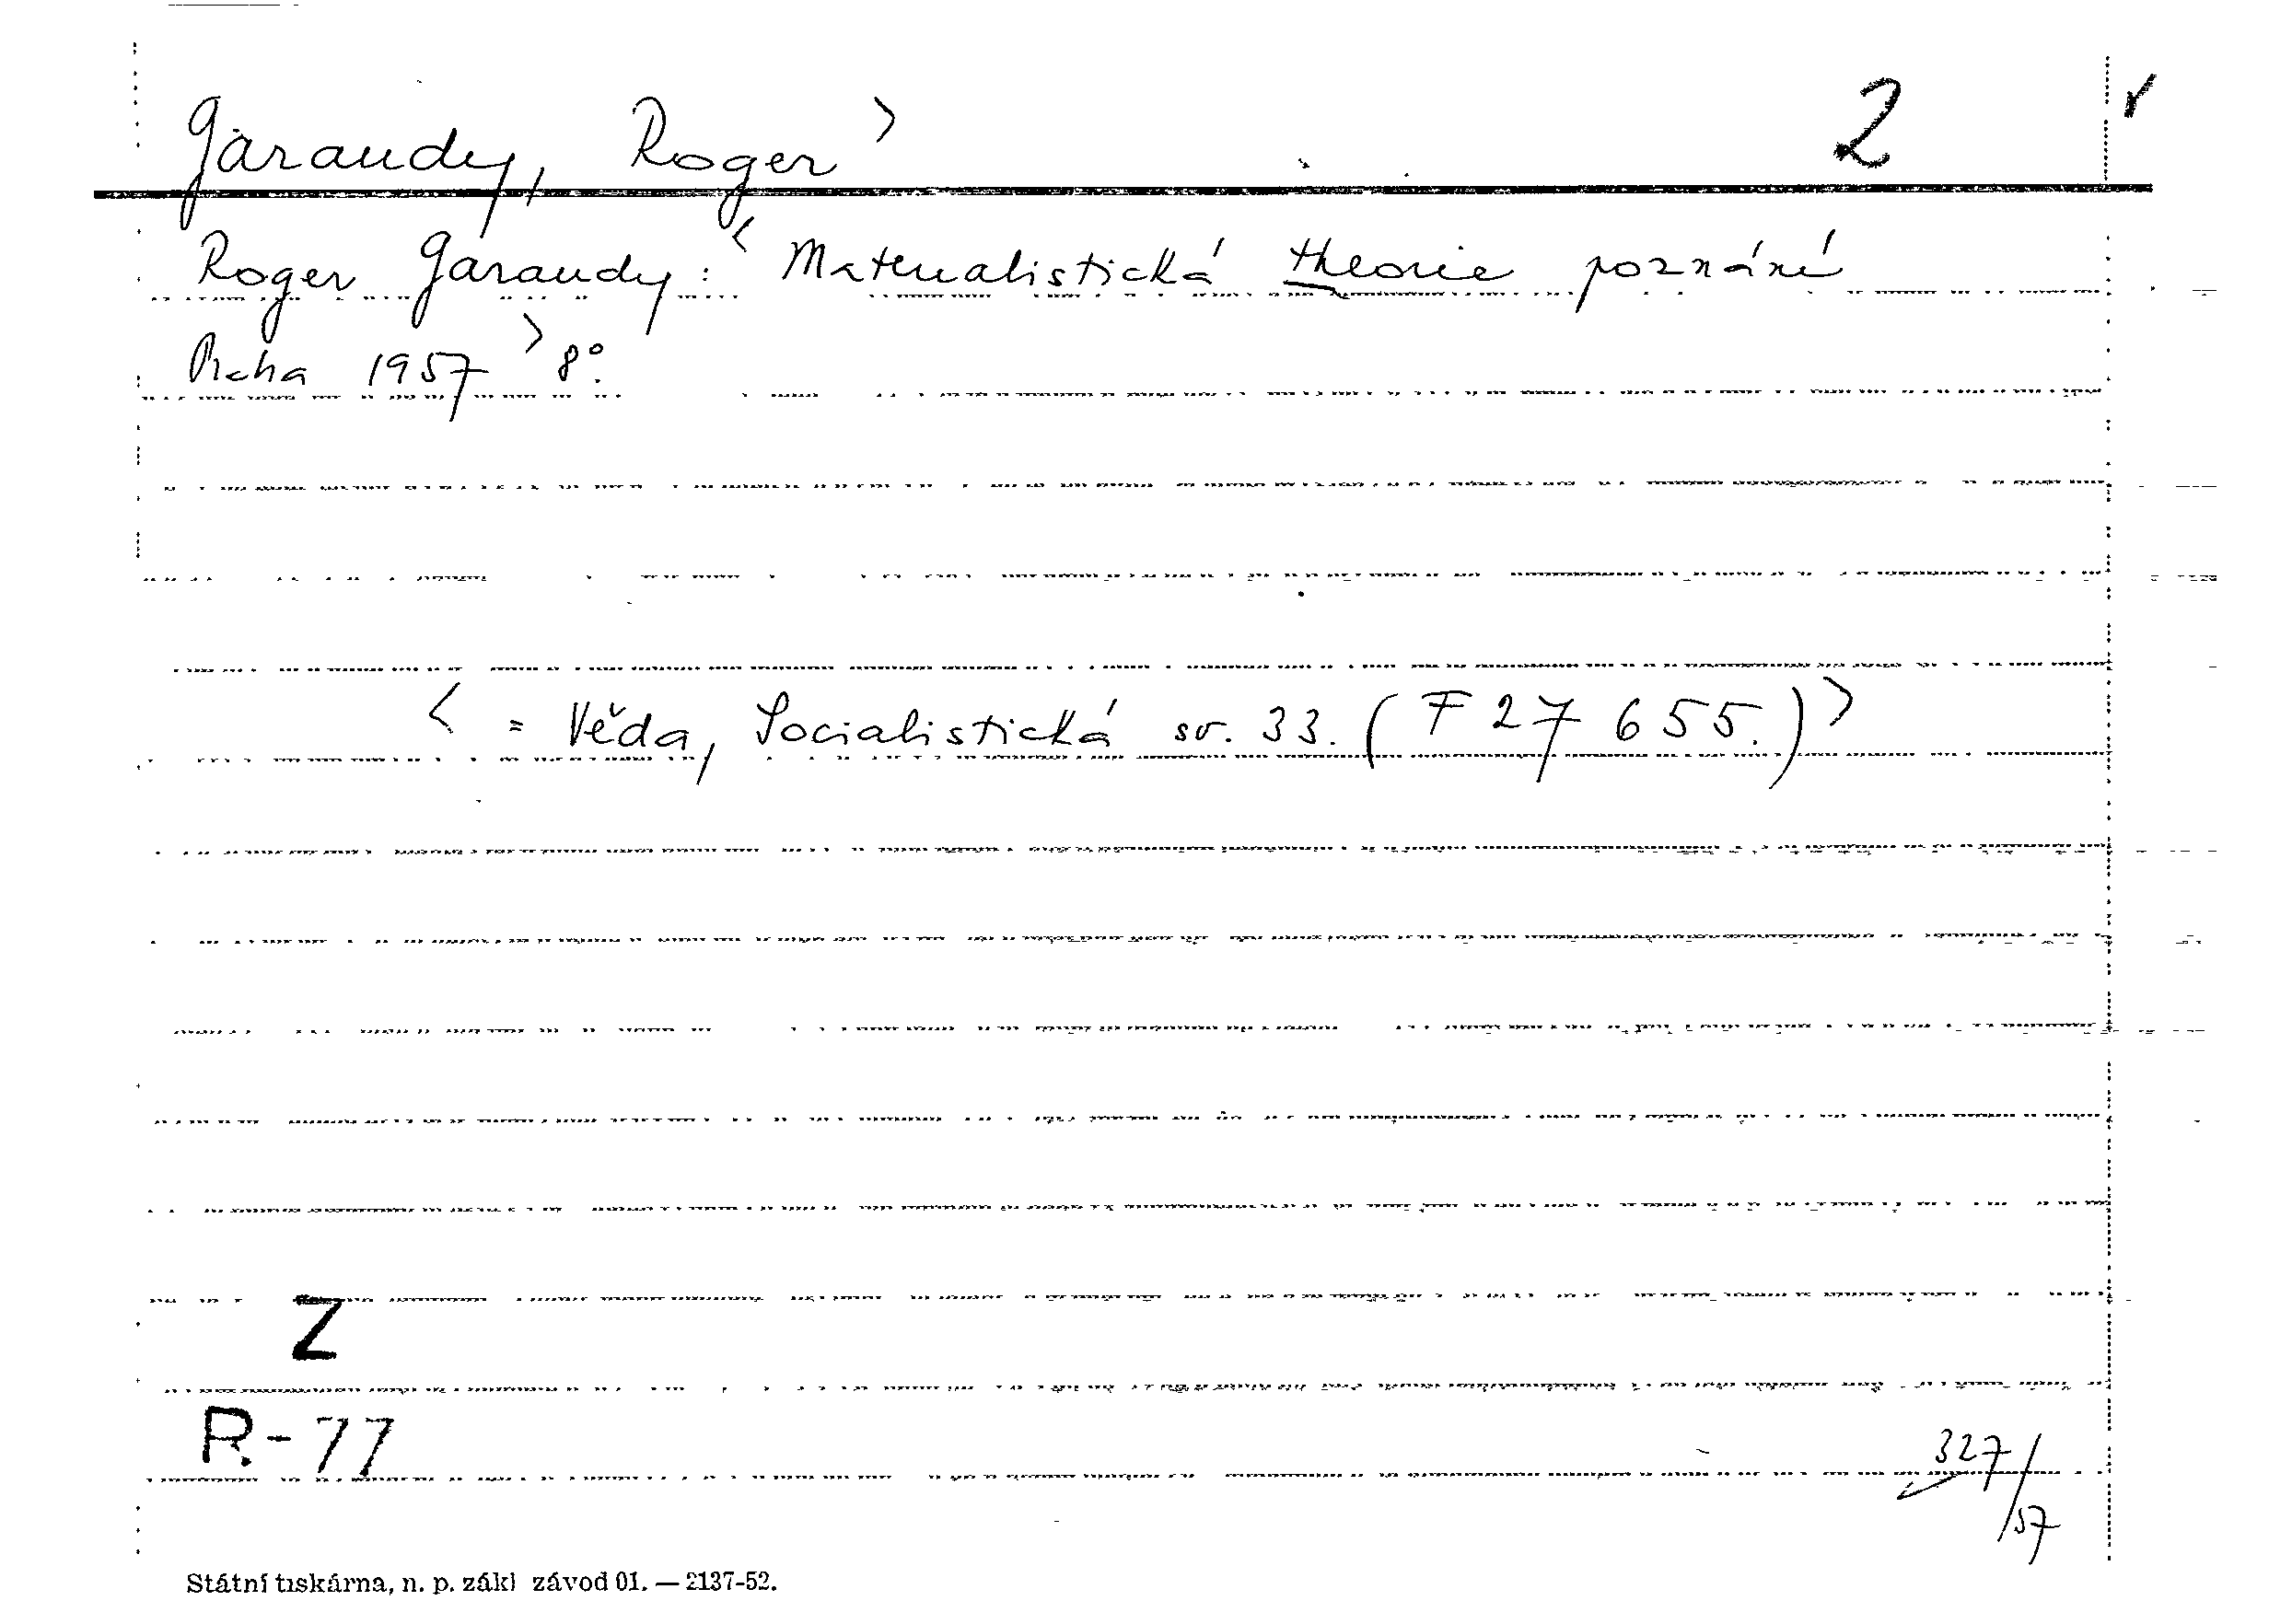 Garaudy, Roger > 2 v
Roger Garaudy: < Materialistická theorie poznání
Praha 1957 > 8°.
< = Věda, Socialistická sv. 33. (F 27 655.) >
Z
R-77
327/57
Státní tiskárna, n. p. zákl závod 01. — 2137-52.